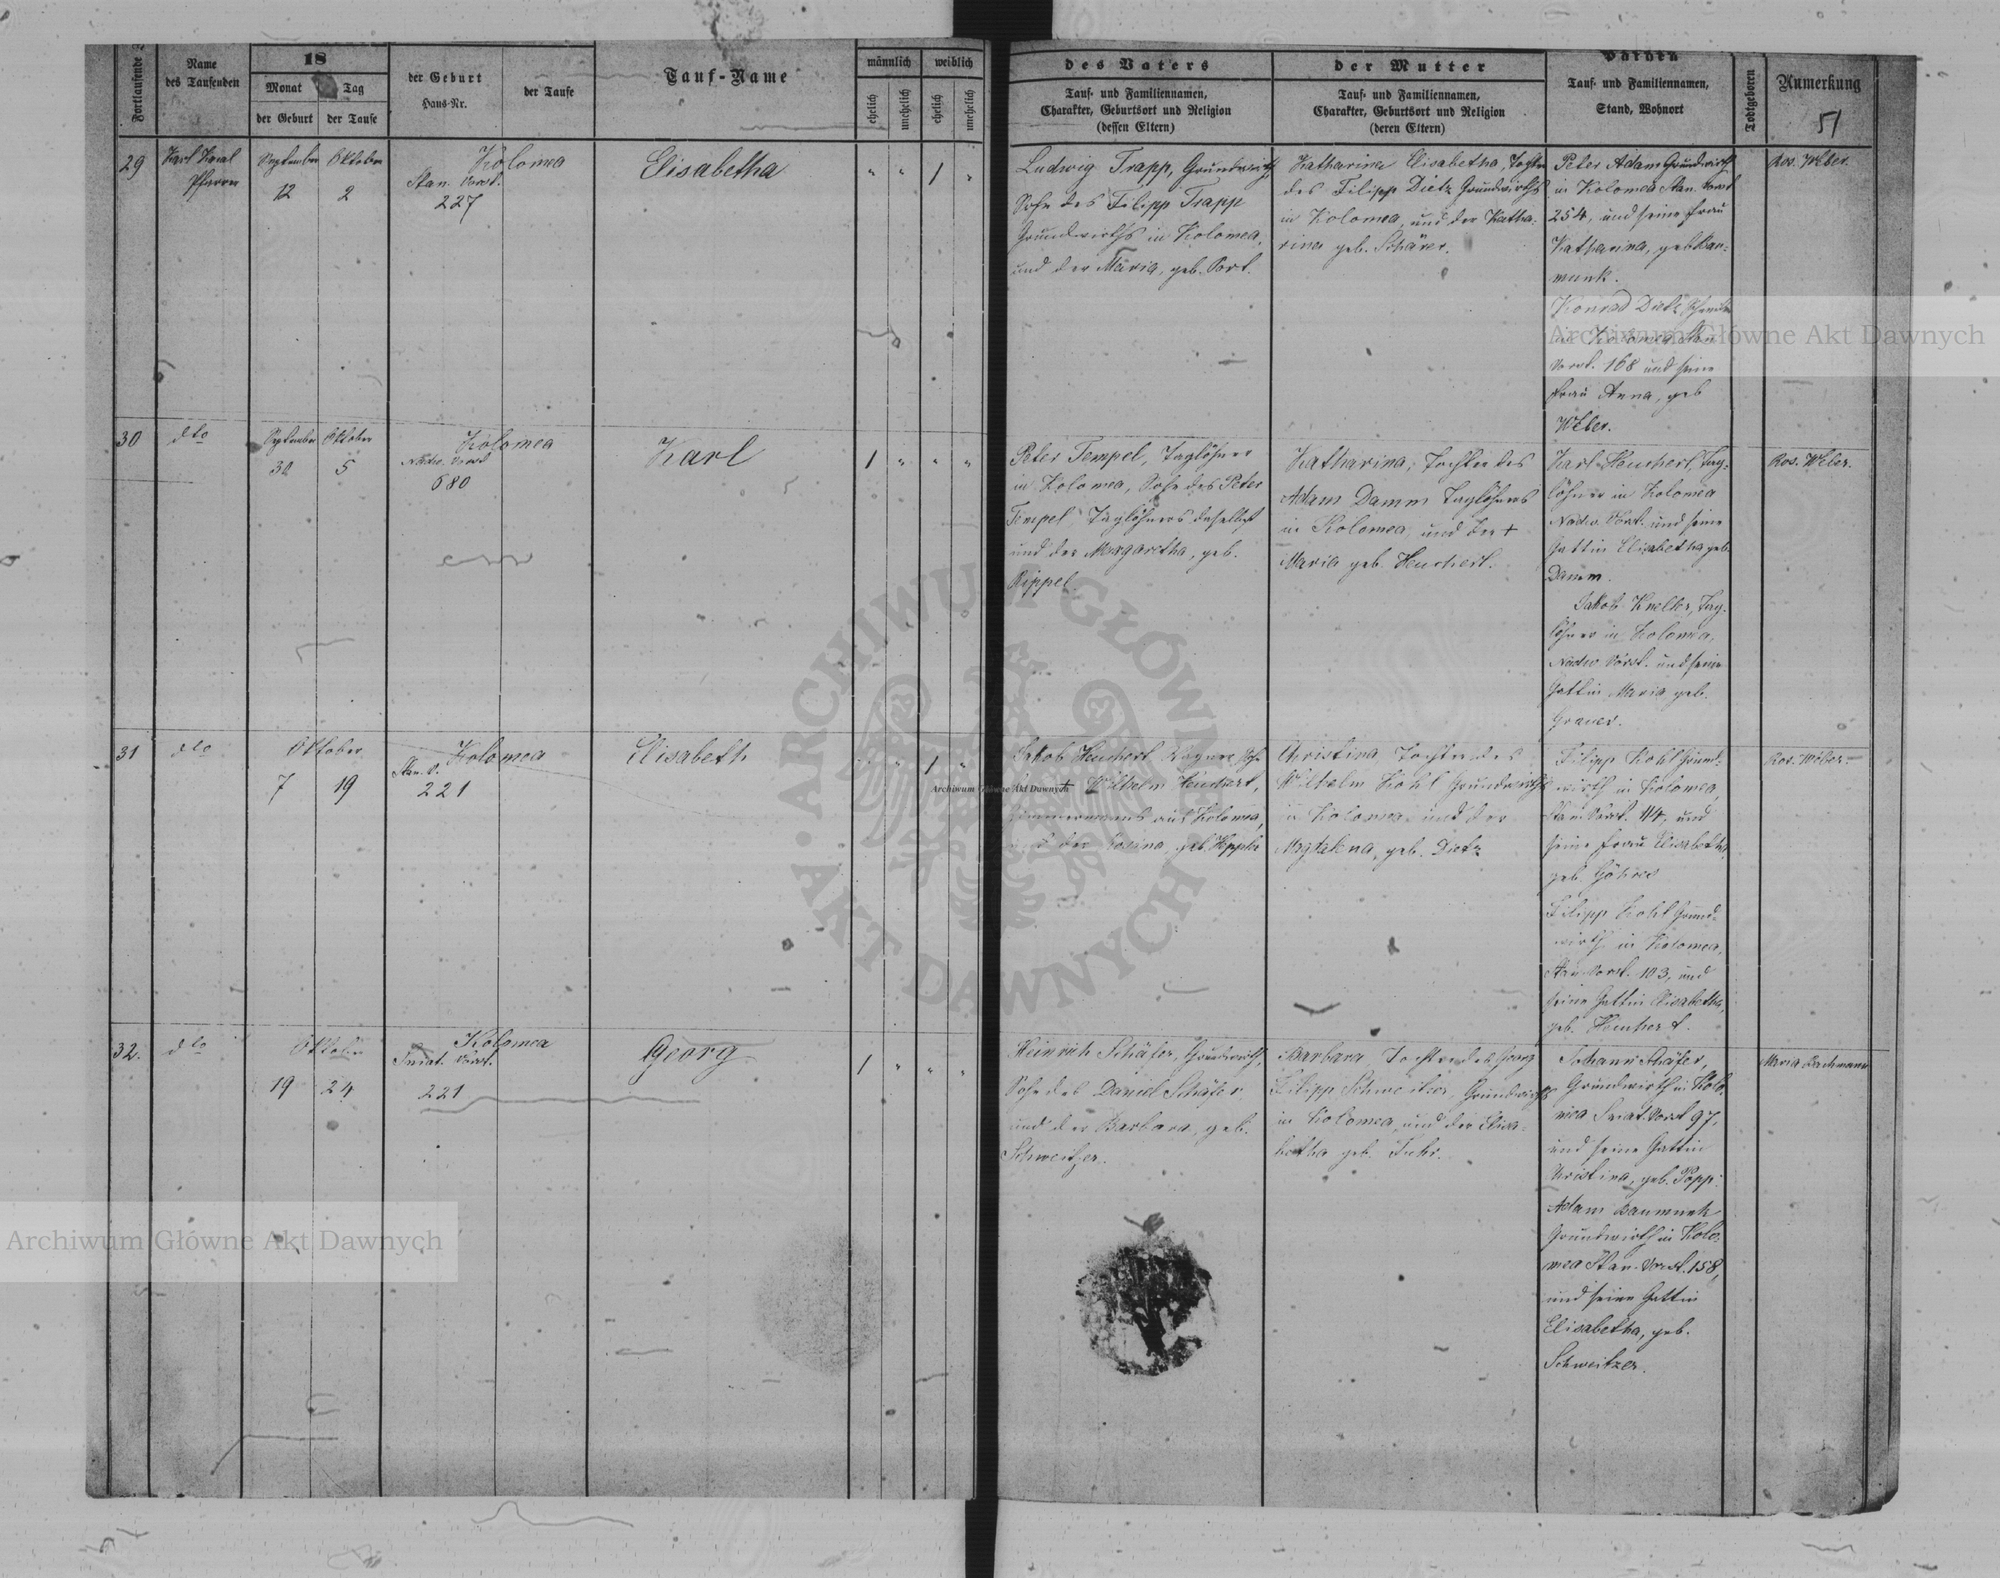 Fortlaufende
Name
des Taufenden
18
Monat
Tag
der Geburt
der Taufe
der Geburt
Haus-Nr.
der Taufe
Tauf-Name
männlich
weiblich
ehelich
unehelich
ehelich
unehelich
des Vaters
Tauf- und Familiennamen,
Charakter, Geburtsort und Religion
(dessen Eltern)
der Mutter
Tauf- und Familiennamen,
Charakter, Geburtsort und Religion
(deren Eltern)
Pathen
Tauf- und Familiennamen,
Stand, Wohnort
Todtgeboren
Anmerkung
51
29
Karl Kral
Pfarrer
September
Oktober
12
2
Kolomea
Stan. Vorst.
227
Elisabetha
" " 1 "
Ludwig Trapp, Grundwirth,
Sohn des Filipp Trapp
Grundwirths in Kolomea,
und der Maria, geb. Port.
Katharina Elisabetha, Tochter
des Filipp Dietz Grundwirths
in Kolomea, und der Katha-
rina geb. Schärer.
Peter Adam Grundwirth
in Kolomea Stan. Vorst
254, und seine Frau
Katharina, geb. Bau-
munk.
Konrad Dietz
in Kolomea Stan
Vorst. 168 und seine
Frau Anna, geb
Weber.
Ros. Weber.
30
dto
September
Oktober
30
5
Kolomea
Nadw. Vorst
680
Karl
1 " " "
Peter Tempel, Taglöhner
in Kolomea, Sohn des Peter
Tempel, Taglöhners daselbst
und der Margaretha, geb.
Rippel.
Katharina, Tochter des
Adam Damm Taglöhners
in Kolomea, und der +
Maria geb. Heuchert.
Karl Heuchert, Tag-
löhner in Kolomea
Nadw. Vorst. und seine
Gattin Elisabetha geb.
Damm.
Jakob Kneller, Tag-
löhner in Kolomea,
Nadw Vorst. und seine
Gattin Maria geb.
Grauer.
Ros. Weber.
31
dto
Oktober
7
19
Kolomea
Stan. V.
221
Elisabeth
" " 1 "
Jakob Heuchert, Wagner, Sohn
+ Wilhelm Heuchert,
Zimmermanns aus Kolomea,
und der Rosina, geb. Hepple
Christina, Tochter des
Wilhelm Kohl Grundwirths
in Kolomea und der
Magdalena, geb. Dietz
Filipp Kohl Grund-
wirth in Kolomea,
Stan. Vorst. 114, und
seine Frau Elisabetha,
geb.
Filipp Kohl Grund-
wirth in Kolomea,
Stan. Vorst. 103, und
seine Gattin Elisabetha,
geb. Heuchert.
Ros. Weber.
32.
dto
Oktober
19
24
Kolomea
Sniat. Vorst.
221
Georg
1 " " "
Heinrich Schäfer, Grundwirth,
Sohn des Daniel Schäfer
und der Barbara, geb.
Schweitzer.
Barbara Tochter des Georg
Filipp Schweitzer, Grundwirths
in Kolomea, und der Elisa-
betha geb. Fuhr.
Johann Schäfer,
Grundwirth in Kolo-
mea Sniat. Vorst 97,
und seine Gattin
Kristina, geb. Popp.
Adam Baumunk
Grundwirth in Kolo-
mea Stan. Vorst. 158,
und seine Gattin
Elisabetha, geb.
Schweitzer.
Maria Bachmann
Archiwum Główne Akt Dawnych
Archiwum Główne Akt Dawnych
Archiwum Główne Akt Dawnych
ARCHIWUM GŁÓWNE
AKT DAWNYCH